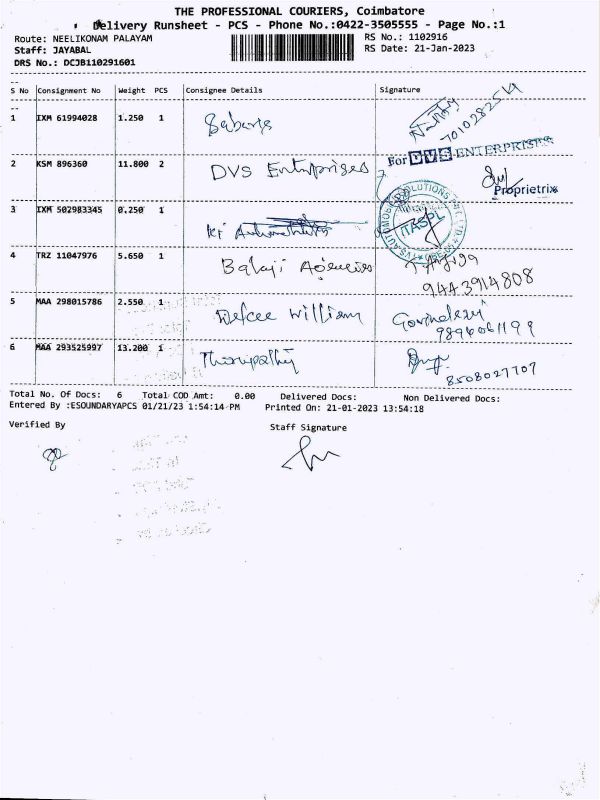 THE PROFESSIONAL COURIERS, Coimbatore
Delivery Runsheet - PCS - Phone No.:0422-3505555 - Page No.:1
Route: NEELIKONAM PALAYAM
RS No.: 1102916
Staff: JAYABAL
RS Date: 21-Jan-2023
DRS No.: DCJB110291601
S No Consignment No Weight PCS Consignee Details Signature
1 IXM 61994028 1.250 1
2 KSM 896360 11.800 2 DVS Enterprises For DVS ENTERPRISES
Proprietrix
3 IXM 502983345 0.250 1
TASPL
4 TRZ 11047976 5.650 1 Balaji Agencies
9443914808
5 MAA 298015786 2.550 1 William
6 MAA 293525997 13.200 1 Thirupathy
8508027707
Total No. Of Docs: 6 Total COD Amt: 0.00 Delivered Docs: Non Delivered Docs:
Entered By :ESOUNDARYAPCS 01/21/23 1:54:14 PM Printed On: 21-01-2023 13:54:18
Verified By
Staff Signature